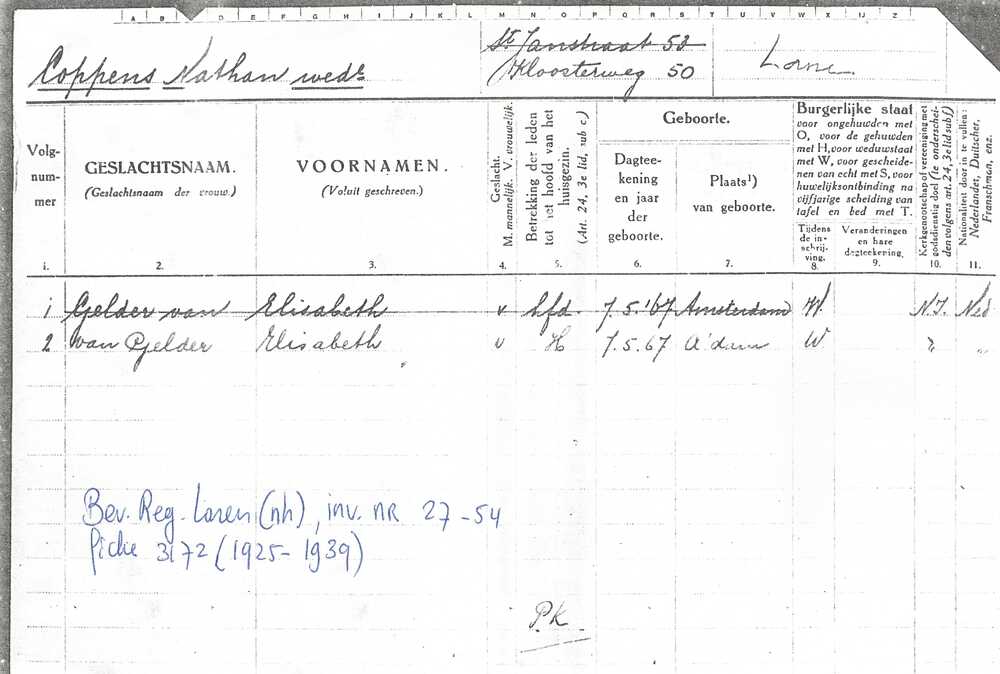 A B C D E F G H I J K L M N O P Q R S T U V W X Y Z
Coppens Nathan wede
St Janstraat 52
Kloosterweg 50
Volg-
num-
mer
1.
GESLACHTSNAAM.
(Geslachtsnaam der vrouw.)
2.
VOORNAMEN.
(Voluit geschreven.)
3.
Geslacht.
M. mannelijk. V. vrouwelijk.
4.
Betrekking der leden
tot het hoofd van het
huisgezin.
(Art. 24, 3e lid, sub c.)
5.
Geboorte.
Dagtee-
kening
en jaar
der
geboorte.
6.
Plaats¹)
van geboorte.
7.
Burgerlijke staat
voor ongehuwden met
O, voor de gehuwden
met H, voor weduwstaat
met W, voor gescheide-
nen van echt met S, voor
huwelijksontbinding na
vijfjarige scheiding van
tafel en bed met T.
Tijdens
de in-
schrij-
ving.
8.
Veranderingen
en hare
dagteekening.
9.
Kerkgenootschap of vereeniging met
godsdienstig doel (te onderschei-
den volgens art. 24, 3e lid sub f)
10.
Nationaliteit door in te vullen:
Nederlander, Duitscher,
Franschman, enz.
11.
1 Gelder van Elisabeth v hfd. 7.5.'67 Amsterdam W N.I. Ned.
2 van Gelder Elisabeth v H 7.5.67 A'dam W " "
Bev. Reg. Laren (nh), inv. nr 27-54
fiche 3172 (1925-1939)
P.K.